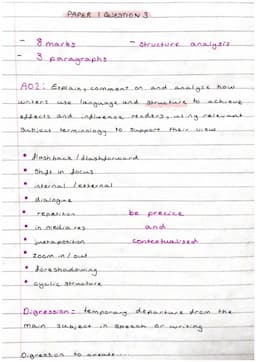 PAPER 1 QUESTION 3
- 8 marks - structure analysis
- 3 paragraphs
AO2: Explain, comment on and analyse how
writers use language and structure to achieve
effects and influence readers, using relevant
subject terminology to support their view
• flashback / flashforward
• Shift in focus
• internal / external
• dialogue
• repetition
• in media res
• juxtaposition
• zoom in / out
• foreshadowing
• cyclic structure
be precise
and
contextualised
Digression: temporary departure from the
main subject in speech or writing
Digression to create...